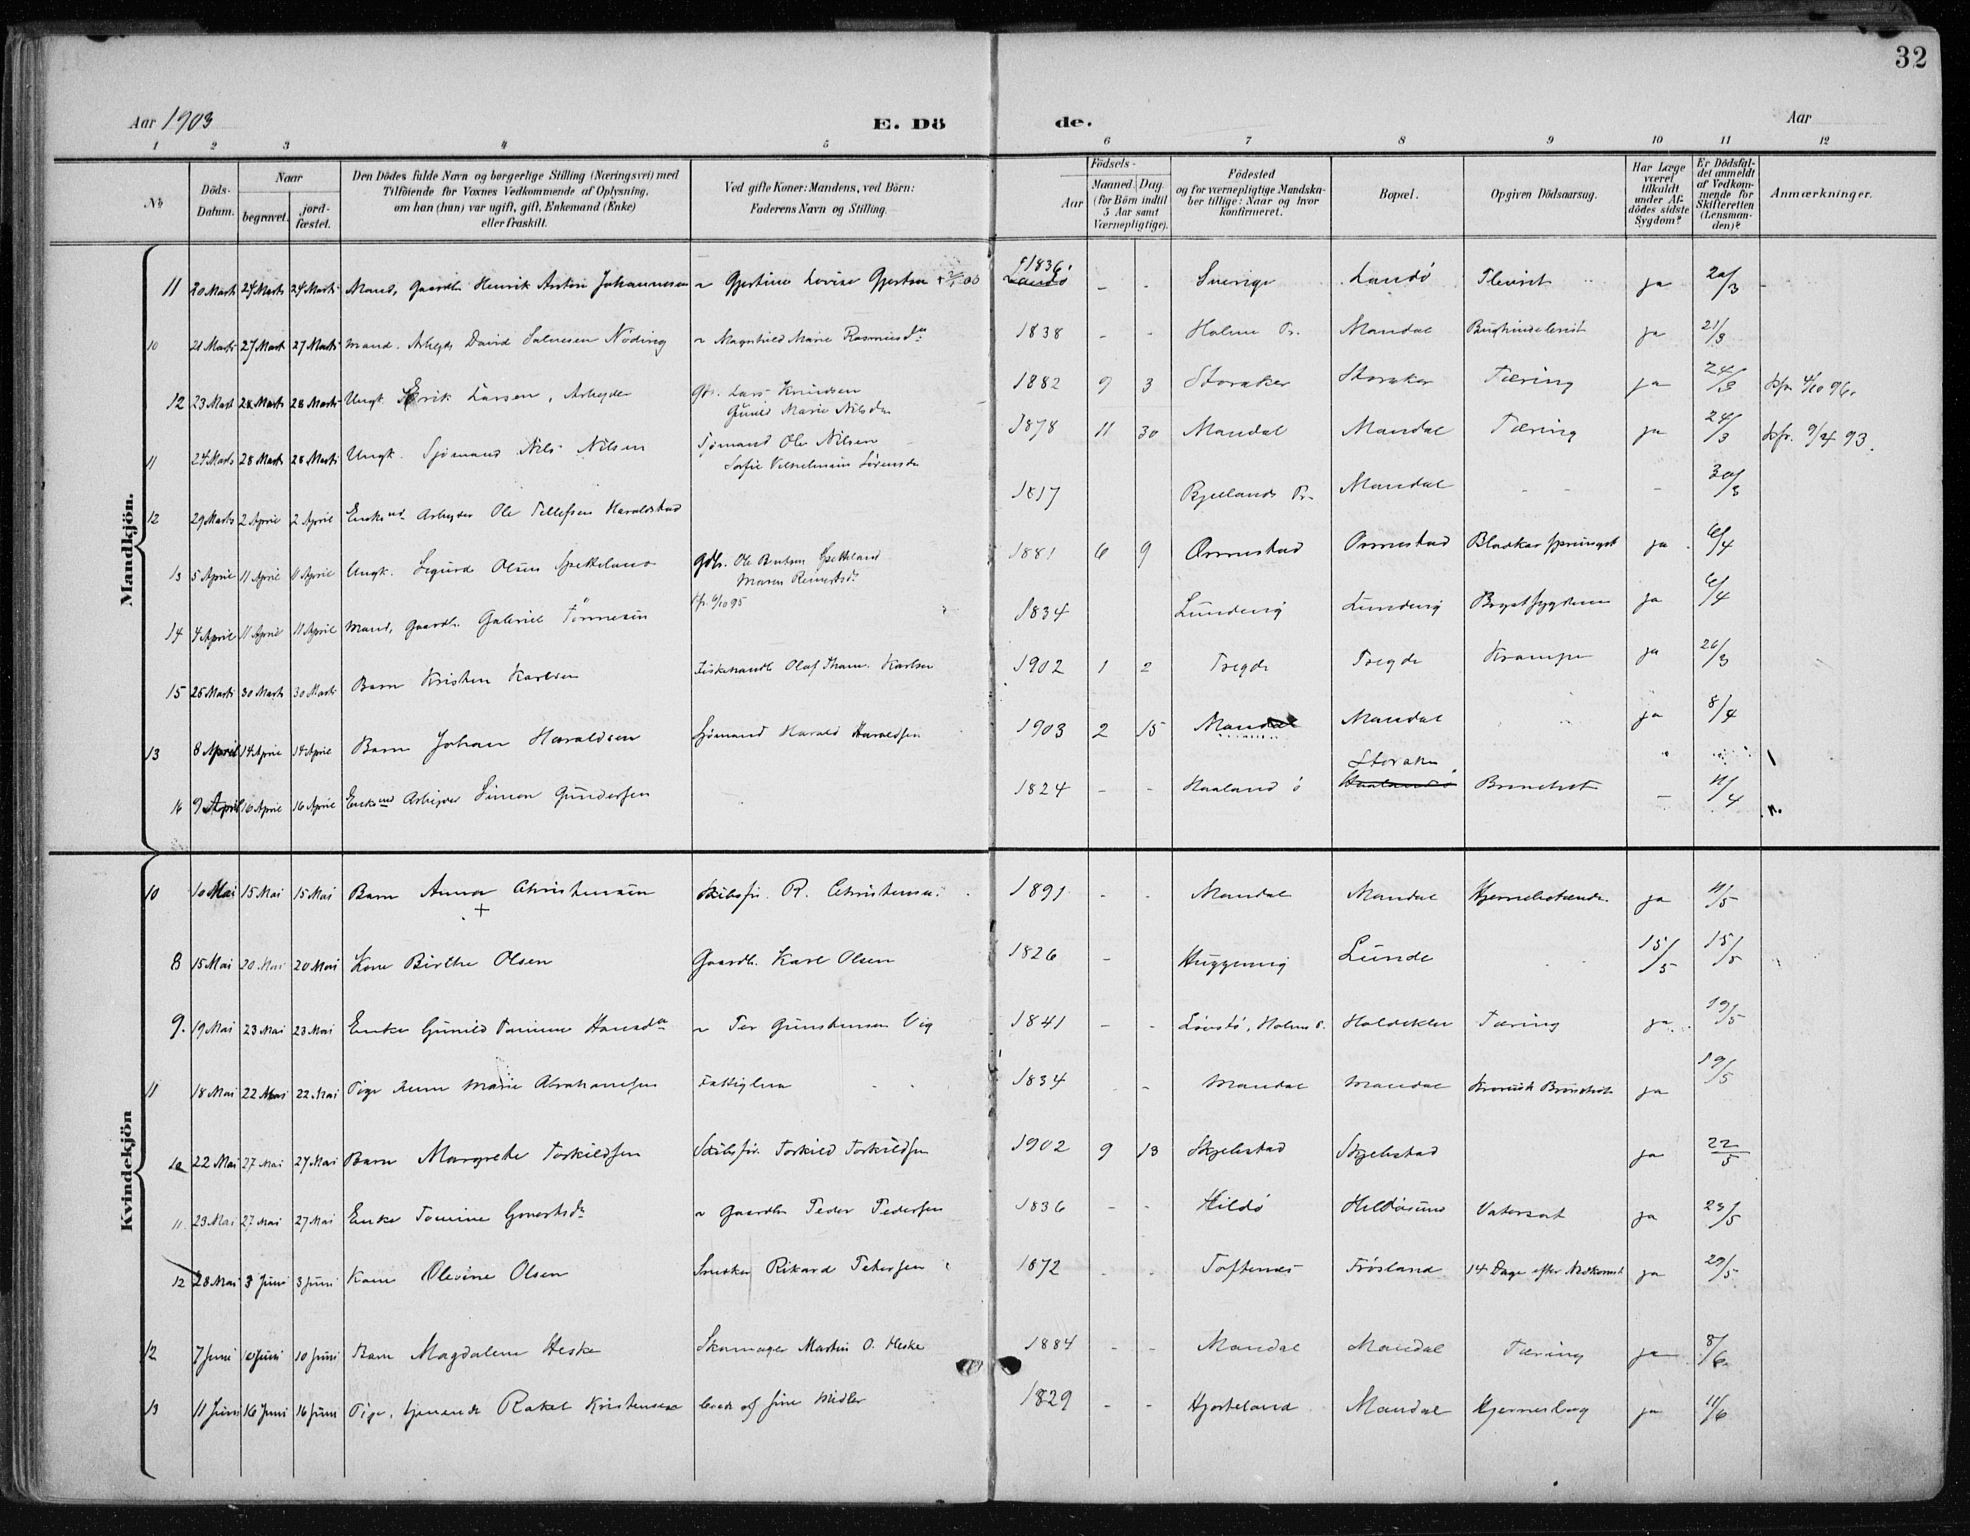 32
Aar 1903
E. Dö de.
Aar
1 2 3 4 5 6 7 8 9 10 11 12
№
Döds-Datum.
Naar
begravet.
jord-fæstet.
Den Dödes fulde Navn og borgerlige Stilling (Næringsvei) med
Tilföiende for Voxnes Vedkommende af Oplysning,
om han (hun) var ugift, gift, Enkemand (Enke)
eller fraskilt.
Ved gifte Koner: Mandens, ved Börn:
Faderens Navn og Stilling.
Födsels-
Aar
Maaned. Dag.
(for Börn indtil
5 Aar samt
Værnepligtige).
Födested
og for værnepligtige Mandskaber tillige: Naar og hvor
konfirmeret.
Bopæl.
Opgiven Dödsaarsag.
Har Læge
været
tilkaldt
under Afdödes sidste
Sygdom?
Er Dödsfaldet anmeldt
af Vedkommende for
Skifteretten
(Lensmanden)?
Anmærkninger.
Mandkjön.
11 20 Marts 24 Marts 24 Marts Mand, Gaardb. Henrik Anton Johannesen ~ Gjertine Lovise 1836 Landö - - Sverige Landö Pleurit ja 20/3 -
10 21 Marts 27 Marts 27 Marts Mand. Arbeyd. David Salvesen Nöding ~ Magnhild Marie Rasmusd. 1838 - - Holme Pr. Mandal ja 21/3
12 23 Marts 28 Marts 28 Marts Ungk. Erik Larsen, Arbeyder Gbr. Lars Knudsen
Gunild Marie Nilsdtr 1882 9 3 Storaker Storaker Tæring ja 24/3 kfr. 4/10 96.
11 24 Marts 28 Marts 28 Marts Ungk. Sjömand Nils Nilsen Sjömand Ole Nilsen
Sofie Vilhelmine Sörensdtr 1878 11 30 Mandal Mandal Tæring ja 24/3 kfr. 9/4 93.
12 29 Marts 2 April 2 April Enkemd Arbeyder Ole Tellefsen Haraldstad 1817 Bjellands Pr. Mandal - - - 30/3
13 5 April 11 April 11 April Ungk. Sigurd Olsen Spetteland Gdb. Ole Berntsen Spetteland
Maren Reinertsdr
kfr. 6/10 95 1881 6 9 Ormestad Ormestad ja 6/4
14 4 April 11 April 11 April Mand, Gaardb. Gabriel Tönnesen 1834 Lundevig Lundevig Brystsygdom ja 6/4
15 25 Marts 30 Marts 30 Marts Barn Kristen Karlsen Fiskehandl. Olaf Karlsen 1902 1 2 Tregde Tregde Krampe ja 26/3
13 8 April 14 April 14 April Barn Johan Haraldsen Sjömand Harald Haraldsen 1903 2 15 Mandal Mandal ja 8/4
16 9 April 16 April 16 April Enkemd Arbeyder Simon Gundersen 1824 - - Haaland ö Storaker Haalandö Bronchit - 11/4
Kvindekjön
10 10 Mai 15 Mai 15 Mai Barn Anna Christensen + Skibsför. R. Christensen 1891 - - Mandal Mandal ja 11/5
8 15 Mai 20 Mai 20 Mai Kone Birthe Olsen Gaardb. Karl Olsen 1826 - Lunde 15/5 15/5
9. 19 Mai 23 Mai 23 Mai Enke Gunild Tomine Hansdtr ~ Per Gunstensen Vig 1841 - - Holme S. Tæring ja 19/5
11 18 Mai 22 Mai 22 Mai Pige Anne Marie Abrahamsen Fattiglem 1834 - Mandal Mandal Kronisk Bronchit ja 19/5
10 22 Mai 27 Mai 27 Mai Barn Margrethe Torkildsen Skibsför. Torkild Torkildsen 1902 9 13 Skjebstad Skjebstad ja 22/5
11. 23 Mai 27 Mai 27 Mai Enke Tomine ~ Gaardb. Peder Pedersen 1836 - - Hildö Hildösund Vatersot ja 23/5
12 28 Mai 3 Juni 3 Juni Kone Olevine Olsen Snedker Rikard Petersen 1872 - - Toftenes Frösland 14 Dage efter Nedkomst ja 29/5
12 7 Juni 10 Juni 10 Juni Barn Magdalene Heske Skomager Martin O. Heske 1884 - - Mandal Mandal Tæring ja 8/6
13 11 Juni 16 Juni 16 Juni Pige, tjenende Rakel Kristensen leved af sine Midler 1829 - - Hjorteland Mandal Hjerneslag ja 11/6